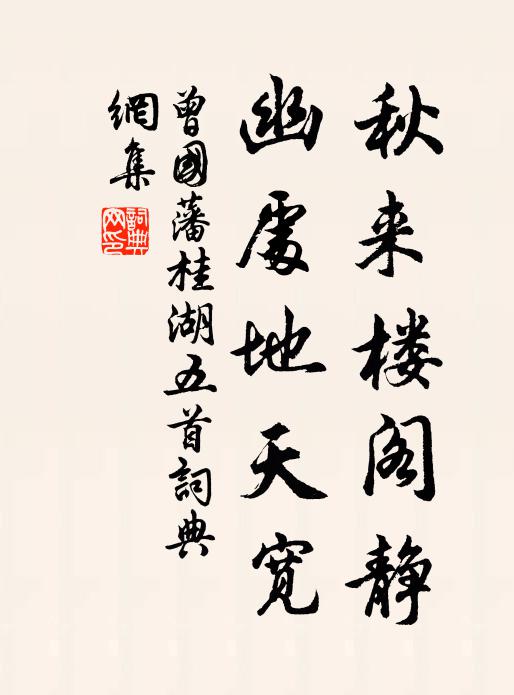 秋来楼阁静
幽處地天宽
曾國藩桂湖五首詞典
網集
詞典
网印